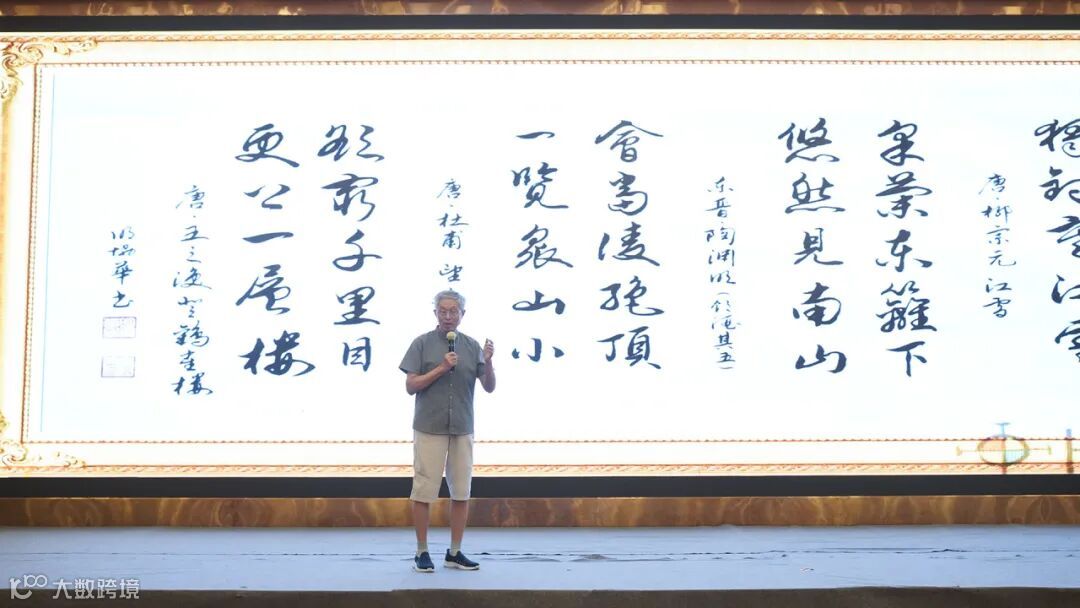 獨釣寒江雪
唐·柳宗元 江雪
采菊东籬下
悠然見南山
东晋·陶渊明(饮酒其五)
會當凌绝頂
一覽衆山小
唐·杜甫 望
欲窮千里目
更上一層楼
唐·王之涣 登鹳雀楼
華书
大数跨境